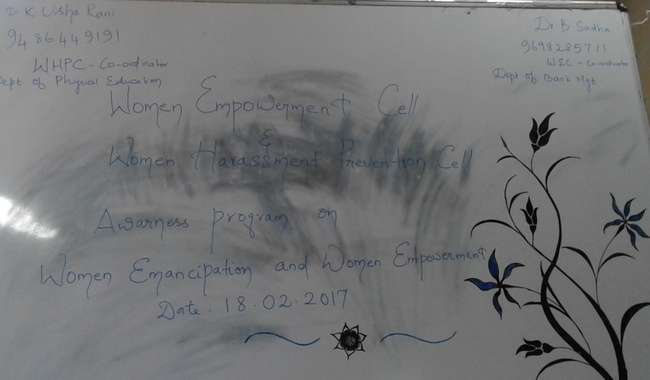 Dr K Usha Rani
9486449191
WHPC - Co-ordinator
Dept of Physical Education
Dr B Sadha
9698285711
WEC - Co-ordinator
Dept of Bank Mgt
Women Empowerment Cell
&
Women Harassment Prevention Cell
Awarness program on
Women Emancipation and Women Empowerment
Date : 18.02.2017